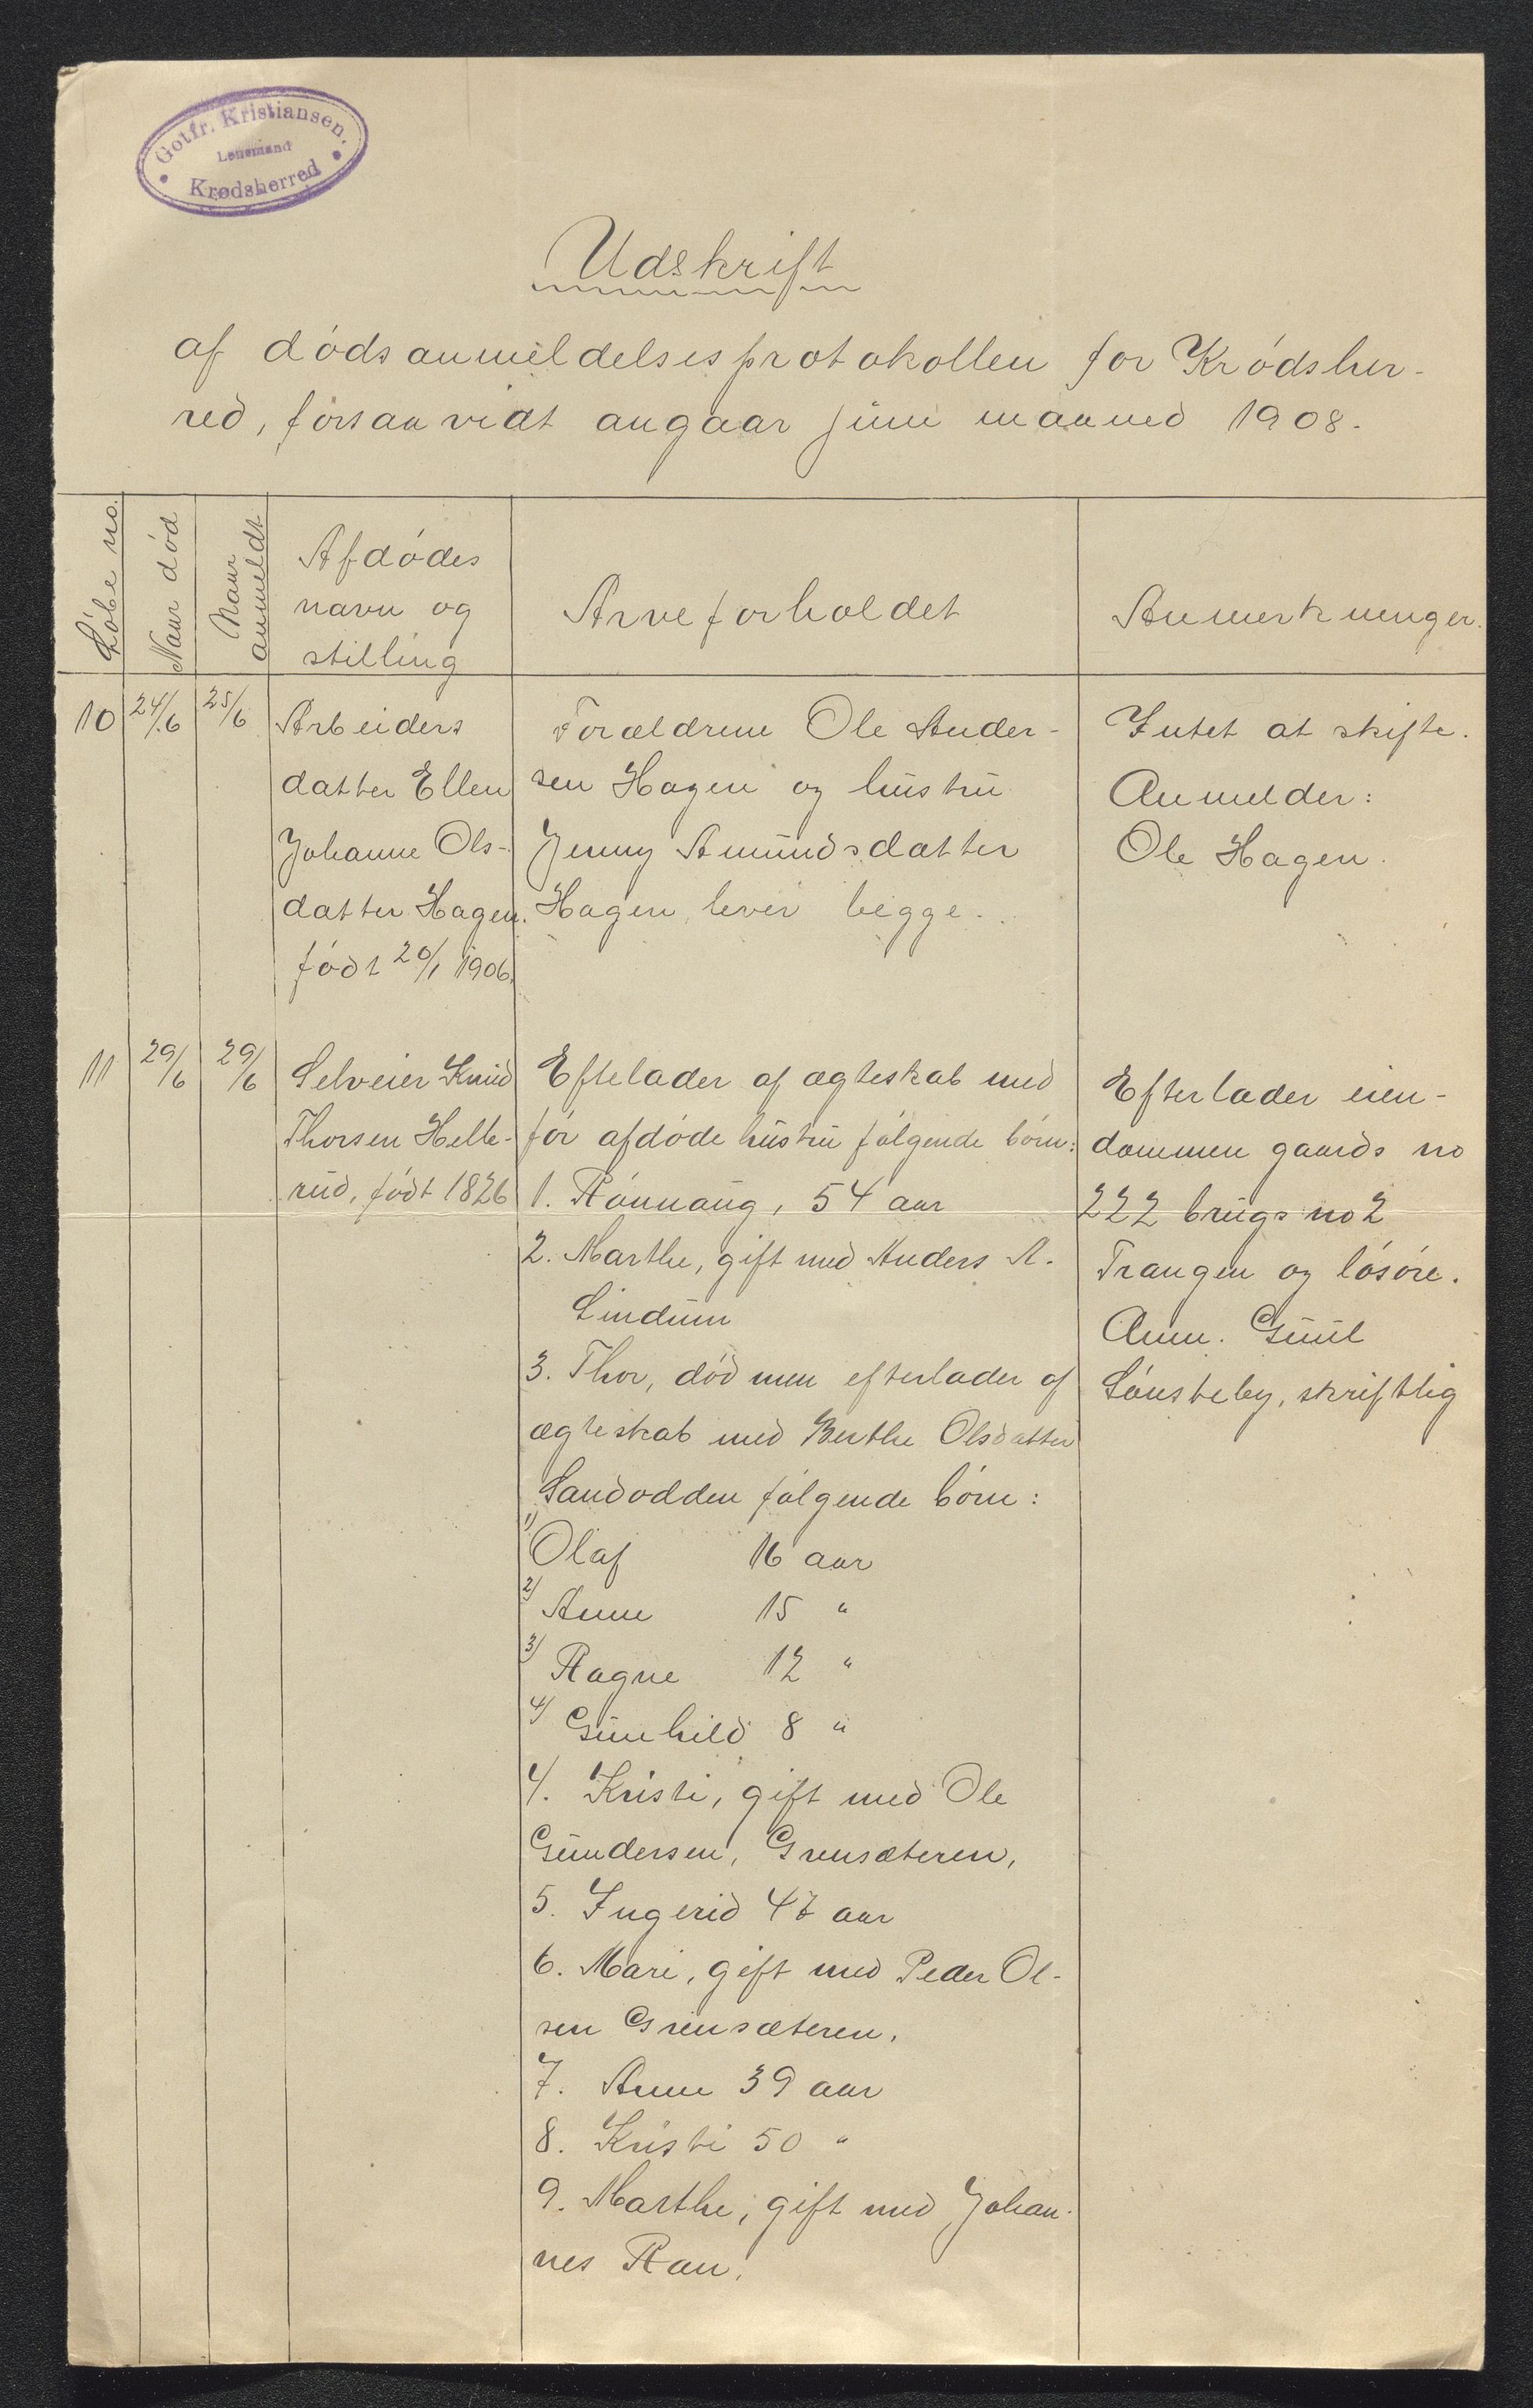 Gotfr. Kristiansen.
Lensmand
Krødsherred
Udskrift
af dødsanmeldelsesprotokollen for Krødsher-
red, forsaavidt angaar juni maaned 1908.
Løbe no.
Naar død
Naar
anmeldt
Afdødes
navn og
stilling
Arveforholdet
Anmerkninger.
10
24/6
25/6
Arbeiders
datter Ellen
Johanne Ols-
datter Hagen.
født 20/1 1906.
Forældrene Ole Ander-
sen Hagen og hustru
Jenny Amundsdatter
Hagen lever begge.
Intet at skifte.
Anmelder:
Ole Hagen.
11
29/6
29/6
Selveier Knud
Thorsen Helle-
rud, født 1826
Eftelader af ægteskab med
før afdøde hustru følgende børn:
1. Rønnaug, 54 aar
2. Marthe, gift med Anders A.
Lindum
3. Thor, død men efterlader af
ægteskab med Berthe Olsdatter
Sandodden følgende børn:
1) Olaf 16 aar
2) Anne 15 "
3) Ragne 12 "
4) Gunhild 8 "
4. Kristi, gift med Ole
Gundersen, Grensæteren,
5. Ingerid 47 aar
6. Mari, gift med Peder Ol-
sen Grensæteren.
7. Anne 39 aar
8. Kristi 50 "
9. Marthe, gift med Johan-
nes Raen.
Efterlader eien-
dommen gaards no
222 brugs no 2
Trangen og løsøre.
Anm. Guul
Sønsteby, skriftlig